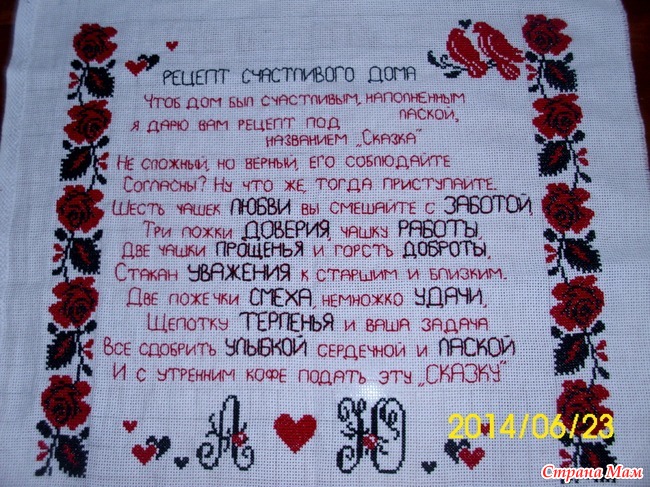 Рецепт счастливого дома
Чтоб дом был счастливым, наполненным
лаской,
я дарю вам рецепт под
названием „Сказка"
Не сложный, но верный, его соблюдайте
Согласны? Ну что же, тогда приступайте.
Шесть чашек ЛЮБВИ вы смешайте с ЗАБОТОЙ,
Три ложки ДОВЕРИЯ, чашку РАБОТЫ,
Две чашки ПРОЩЕНЬЯ и горсть ДОБРОТЫ,
Стакан УВАЖЕНИЯ к старшим и близким.
Две ложечки СМЕХА, немножко УДАЧИ,
Щепотку ТЕРПЕНЬЯ и ваша задача
Все сдобрить УЛЫБКОЙ сердечной и ЛАСКОЙ
И с утренним кофе подать эту „СКАЗКУ"
А Ю
2014/06/23
Страна Мам